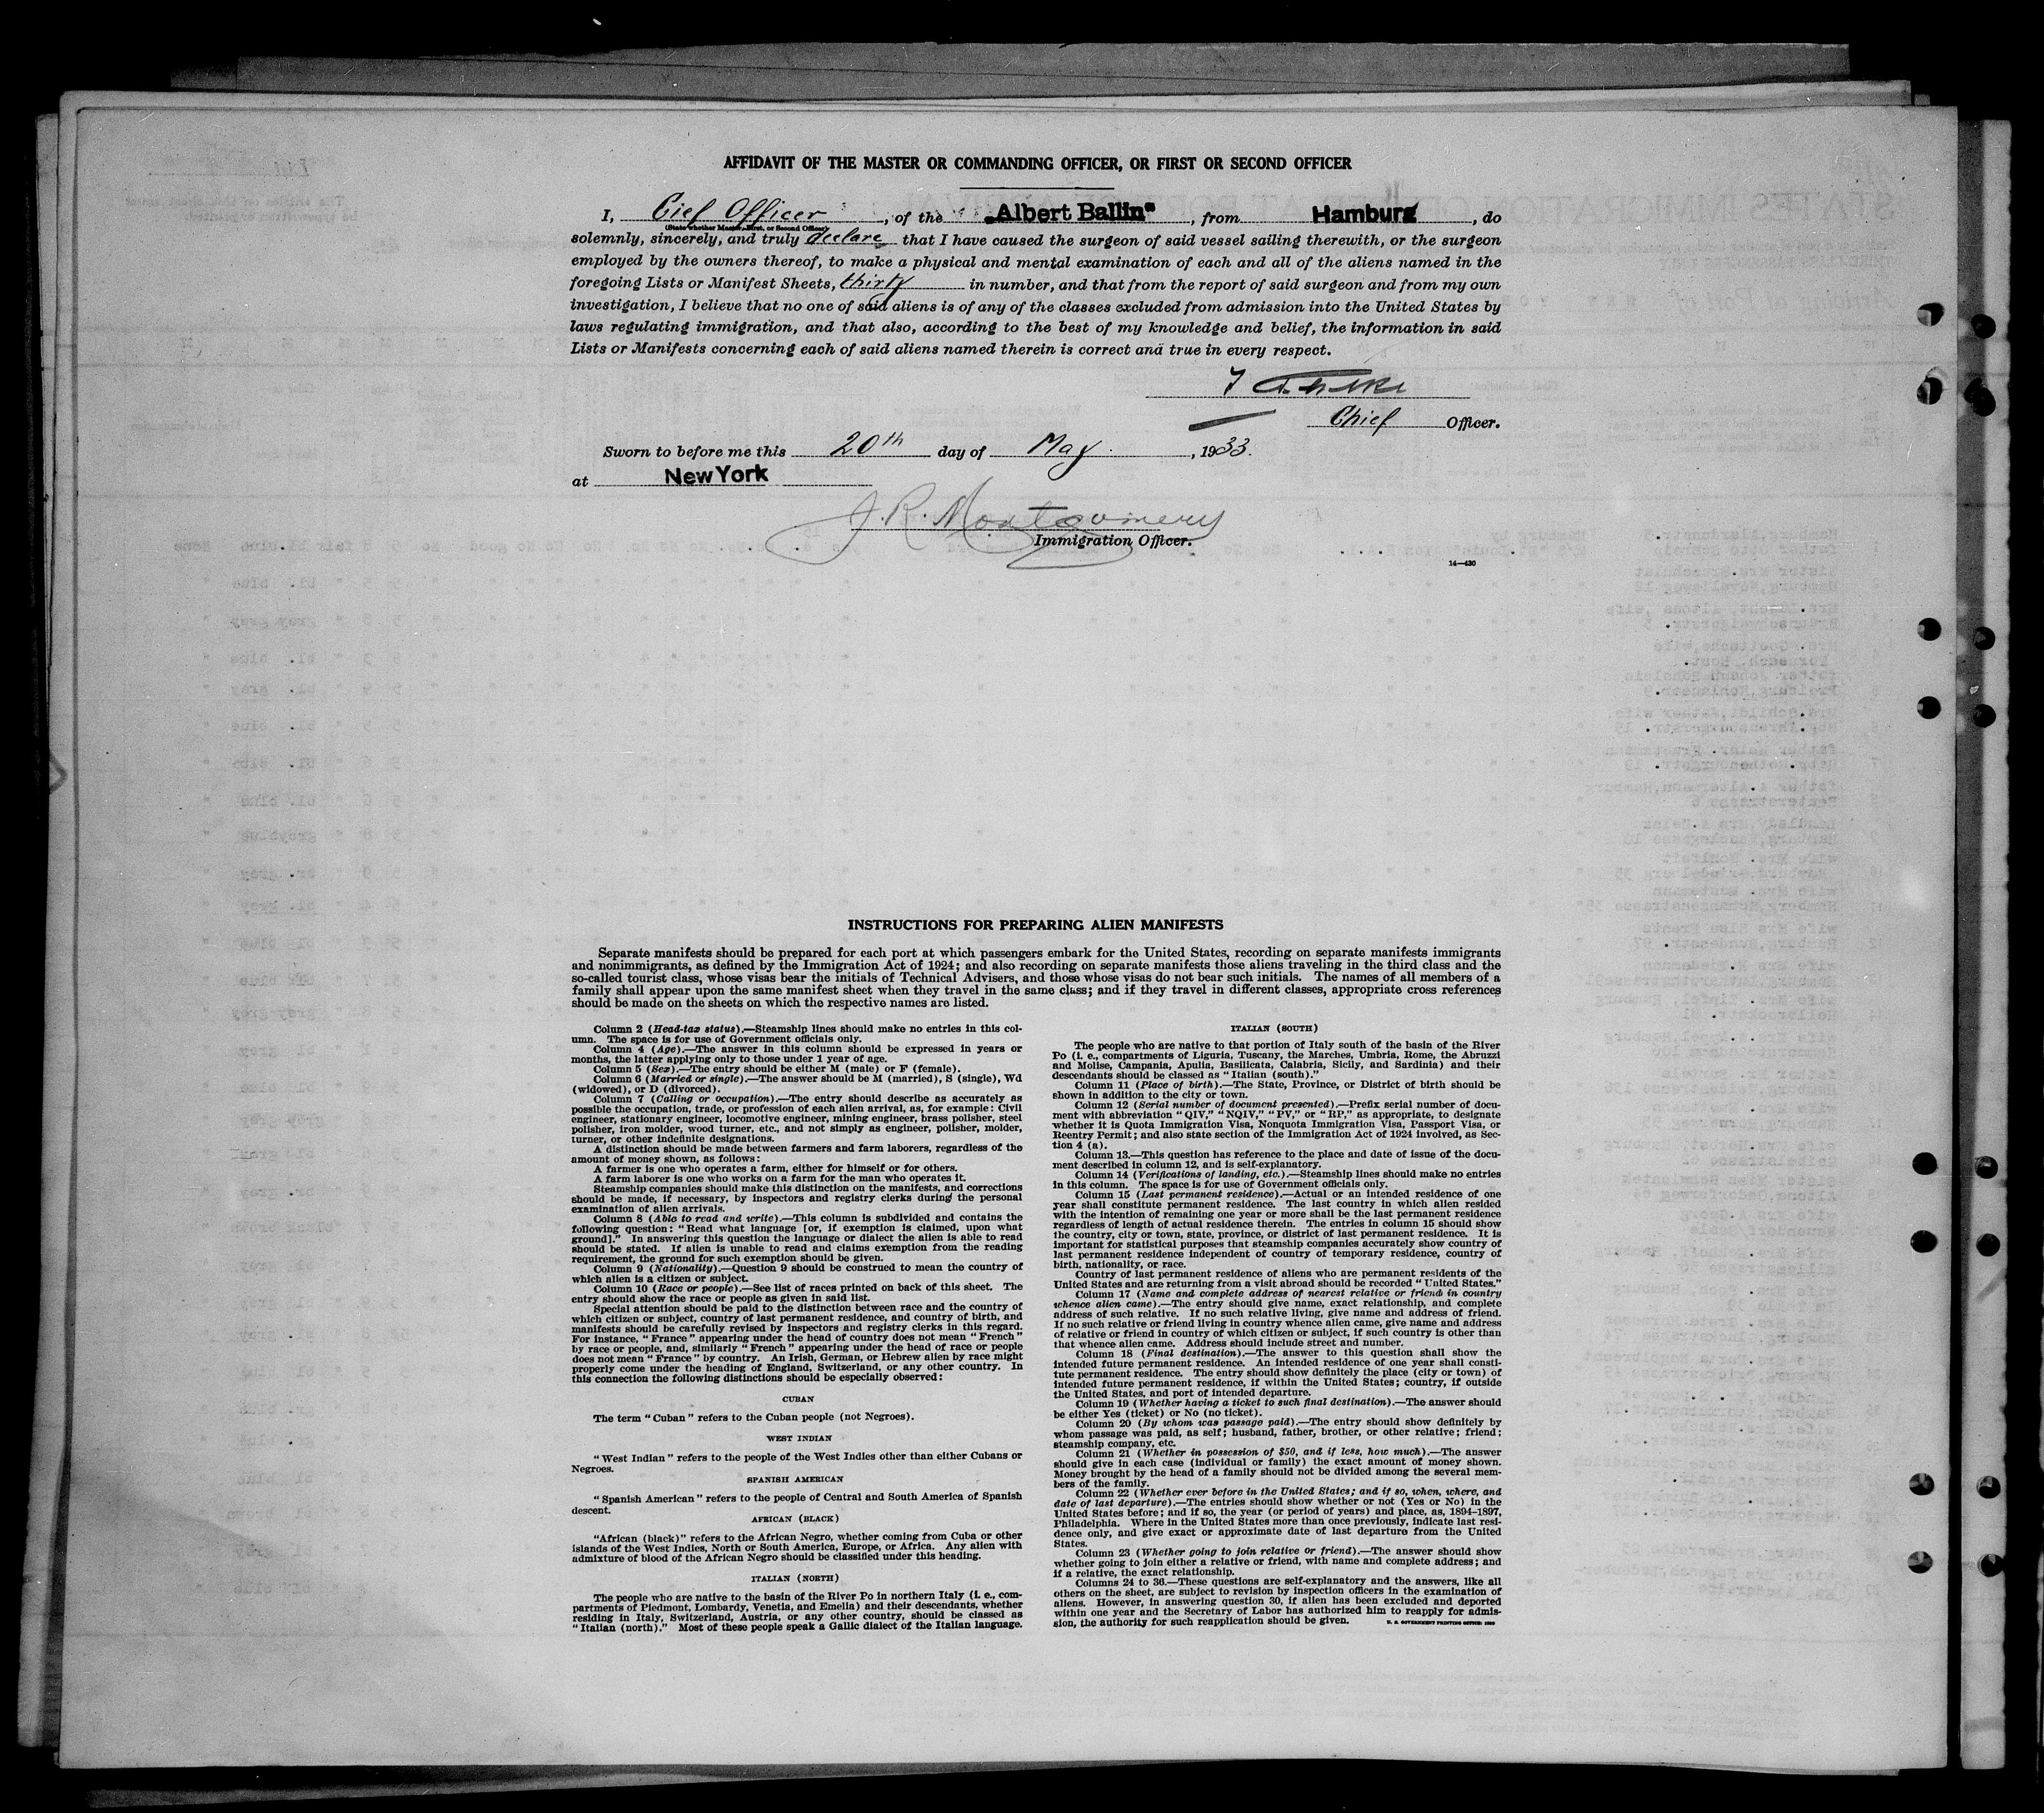 AFFIDAVIT OF THE MASTER OR COMMANDING OFFICER, OR FIRST OR SECOND OFFICER
I, Cief Officer, of the „Albert Ballin“, from Hamburg, do
(State whether Master, First, or Second Officer)
solemnly, sincerely, and truly declare that I have caused the surgeon of said vessel sailing therewith, or the surgeon
employed by the owners thereof, to make a physical and mental examination of each and all of the aliens named in the
foregoing Lists or Manifest Sheets, thirty in number, and that from the report of said surgeon and from my own
investigation, I believe that no one of said aliens is of any of the classes excluded from admission into the United States by
laws regulating immigration, and that also, according to the best of my knowledge and belief, the information in said
Lists or Manifests concerning each of said aliens named therein is correct and true in every respect.
Chief Officer.
Sworn to before me this 20th day of May, 1933.
at New York
J. R. Montgomery
Immigration Officer.
14—430
INSTRUCTIONS FOR PREPARING ALIEN MANIFESTS
Separate manifests should be prepared for each port at which passengers embark for the United States, recording on separate manifests immigrants
and nonimmigrants, as defined by the Immigration Act of 1924; and also recording on separate manifests those aliens traveling in the third class and the
so-called tourist class, whose visas bear the initials of Technical Advisers, and those whose visas do not bear such initials. The names of all members of a
family shall appear upon the same manifest sheet when they travel in the same class; and if they travel in different classes, appropriate cross references
should be made on the sheets on which the respective names are listed.
Column 2 (Head-tax status).—Steamship lines should make no entries in this col-
umn. The space is for use of Government officials only.
Column 4 (Age).—The answer in this column should be expressed in years or
months, the latter applying only to those under 1 year of age.
Column 5 (Sex).—The entry should be either M (male) or F (female).
Column 6 (Married or single).—The answer should be M (married), S (single), Wd
(widowed), or D (divorced).
Column 7 (Calling or occupation).—The entry should describe as accurately as
possible the occupation, trade, or profession of each alien arrival, as, for example: Civil
engineer, stationary engineer, locomotive engineer, mining engineer, brass polisher, steel
polisher, iron molder, wood turner, etc., and not simply as engineer, polisher, molder,
turner, or other indefinite designations.
A distinction should be made between farmers and farm laborers, regardless of the
amount of money shown, as follows:
A farmer is one who operates a farm, either for himself or for others.
A farm laborer is one who works on a farm for the man who operates it.
Steamship companies should make this distinction on the manifests, and corrections
should be made, if necessary, by inspectors and registry clerks during the personal
examination of alien arrivals.
Column 8 (Able to read and write).—This column is subdivided and contains the
following question: “Read what language [or, if exemption is claimed, upon what
ground].” In answering this question the language or dialect the alien is able to read
should be stated. If alien is unable to read and claims exemption from the reading
requirement, the ground for such exemption should be given.
Column 9 (Nationality).—Question 9 should be construed to mean the country of
which alien is a citizen or subject.
Column 10 (Race or people).—See list of races printed on back of this sheet. The
entry should show the race or people as given in said list.
Special attention should be paid to the distinction between race and the country of
which citizen or subject, country of last permanent residence, and country of birth, and
manifests should be carefully revised by inspectors and registry clerks in this regard.
For instance, “France” appearing under the head of country does not mean “French”
by race or people, and, similarly “French” appearing under the head of race or people
does not mean “France” by country. An Irish, German, or Hebrew alien by race might
properly come under the heading of England, Switzerland, or any other country. In
this connection the following distinctions should be especially observed:
CUBAN
The term “Cuban” refers to the Cuban people (not Negroes).
WEST INDIAN
“West Indian” refers to the people of the West Indies other than either Cubans or
Negroes.
SPANISH AMERICAN
“Spanish American” refers to the people of Central and South America of Spanish
descent.
AFRICAN (BLACK)
“African (black)” refers to the African Negro, whether coming from Cuba or other
islands of the West Indies, North or South America, Europe, or Africa. Any alien with
admixture of blood of the African Negro should be classified under this heading.
ITALIAN (NORTH)
The people who are native to the basin of the River Po in northern Italy (i. e., com-
partments of Piedmont, Lombardy, Venetia, and Emelia) and their descendants, whether
residing in Italy, Switzerland, Austria, or any other country, should be classed as
“Italian (north).” Most of these people speak a Gallic dialect of the Italian language.
ITALIAN (SOUTH)
The people who are native to that portion of Italy south of the basin of the River
Po (i. e., compartments of Liguria, Tuscany, the Marches, Umbria, Rome, the Abruzzi
and Molise, Campania, Apulia, Basilicata, Calabria, Sicily, and Sardinia) and their
descendants should be classed as “Italian (south).”
Column 11 (Place of birth).—The State, Province, or District of birth should be
shown in addition to the city or town.
Column 12 (Serial number of document presented).—Prefix serial number of docu-
ment with abbreviation “QIV,” “NQIV,” “PV,” or “RP,” as appropriate, to designate
whether it is Quota Immigration Visa, Nonquota Immigration Visa, Passport Visa, or
Reentry Permit; and also state section of the Immigration Act of 1924 involved, as Sec-
tion 4 (a).
Column 13.—This question has reference to the place and date of issue of the docu-
ment described in column 12, and is self-explanatory.
Column 14 (Verifications of landing, etc.).—Steamship lines should make no entries
in this column. The space is for use of Government officials only.
Column 15 (Last permanent residence).—Actual or an intended residence of one
year shall constitute permanent residence. The last country in which alien resided
with the intention of remaining one year or more shall be the last permanent residence
regardless of length of actual residence therein. The entries in column 15 should show
the country, city or town, state, province, or district of last permanent residence. It is
important for statistical purposes that steamship companies accurately show country of
last permanent residence independent of country of temporary residence, country of
birth, nationality, or race.
Country of last permanent residence of aliens who are permanent residents of the
United States and are returning from a visit abroad should be recorded “United States.”
Column 17 (Name and complete address of nearest relative or friend in country
whence alien came).—The entry should give name, exact relationship, and complete
address of such relative. If no such relative living, give name and address of friend.
If no such relative or friend living in country whence alien came, give name and address
of relative or friend in country of which citizen or subject, if such country is other than
that whence alien came. Address should include street and number.
Column 18 (Final destination).—The answer to this question shall show the
intended future permanent residence. An intended residence of one year shall consti-
tute permanent residence. The entry should show definitely the place (city or town) of
intended future permanent residence, if within the United States; country, if outside
the United States, and port of intended departure.
Column 19 (Whether having a ticket to such final destination).—The answer should
be either Yes (ticket) or No (no ticket).
Column 20 (By whom was passage paid).—The entry should show definitely by
whom passage was paid, as self; husband, father, brother, or other relative; friend;
steamship company, etc.
Column 21 (Whether in possession of $50, and if less, how much).—The answer
should give in each case (individual or family) the exact amount of money shown.
Money brought by the head of a family should not be divided among the several mem-
bers of the family.
Column 22 (Whether ever before in the United States; and if so, when, where, and
date of last departure).—The entries should show whether or not (Yes or No) in the
United States before; and if so, the year (or period of years) and place, as, 1894-1897,
Philadelphia. Where in the United States more than once previously, indicate last resi-
dence only, and give exact or approximate date of last departure from the United
States.
Column 23 (Whether going to join relative or friend).—The answer should show
whether going to join either a relative or friend, with name and complete address; and
if a relative, the exact relationship.
Columns 24 to 36.—These questions are self-explanatory and the answers, like all
others on the sheet, are subject to revision by inspection officers in the examination of
aliens. However, in answering question 30, if alien has been excluded and deported
within one year and the Secretary of Labor has authorized him to reapply for admis-
sion, the authority for such reapplication should be given.